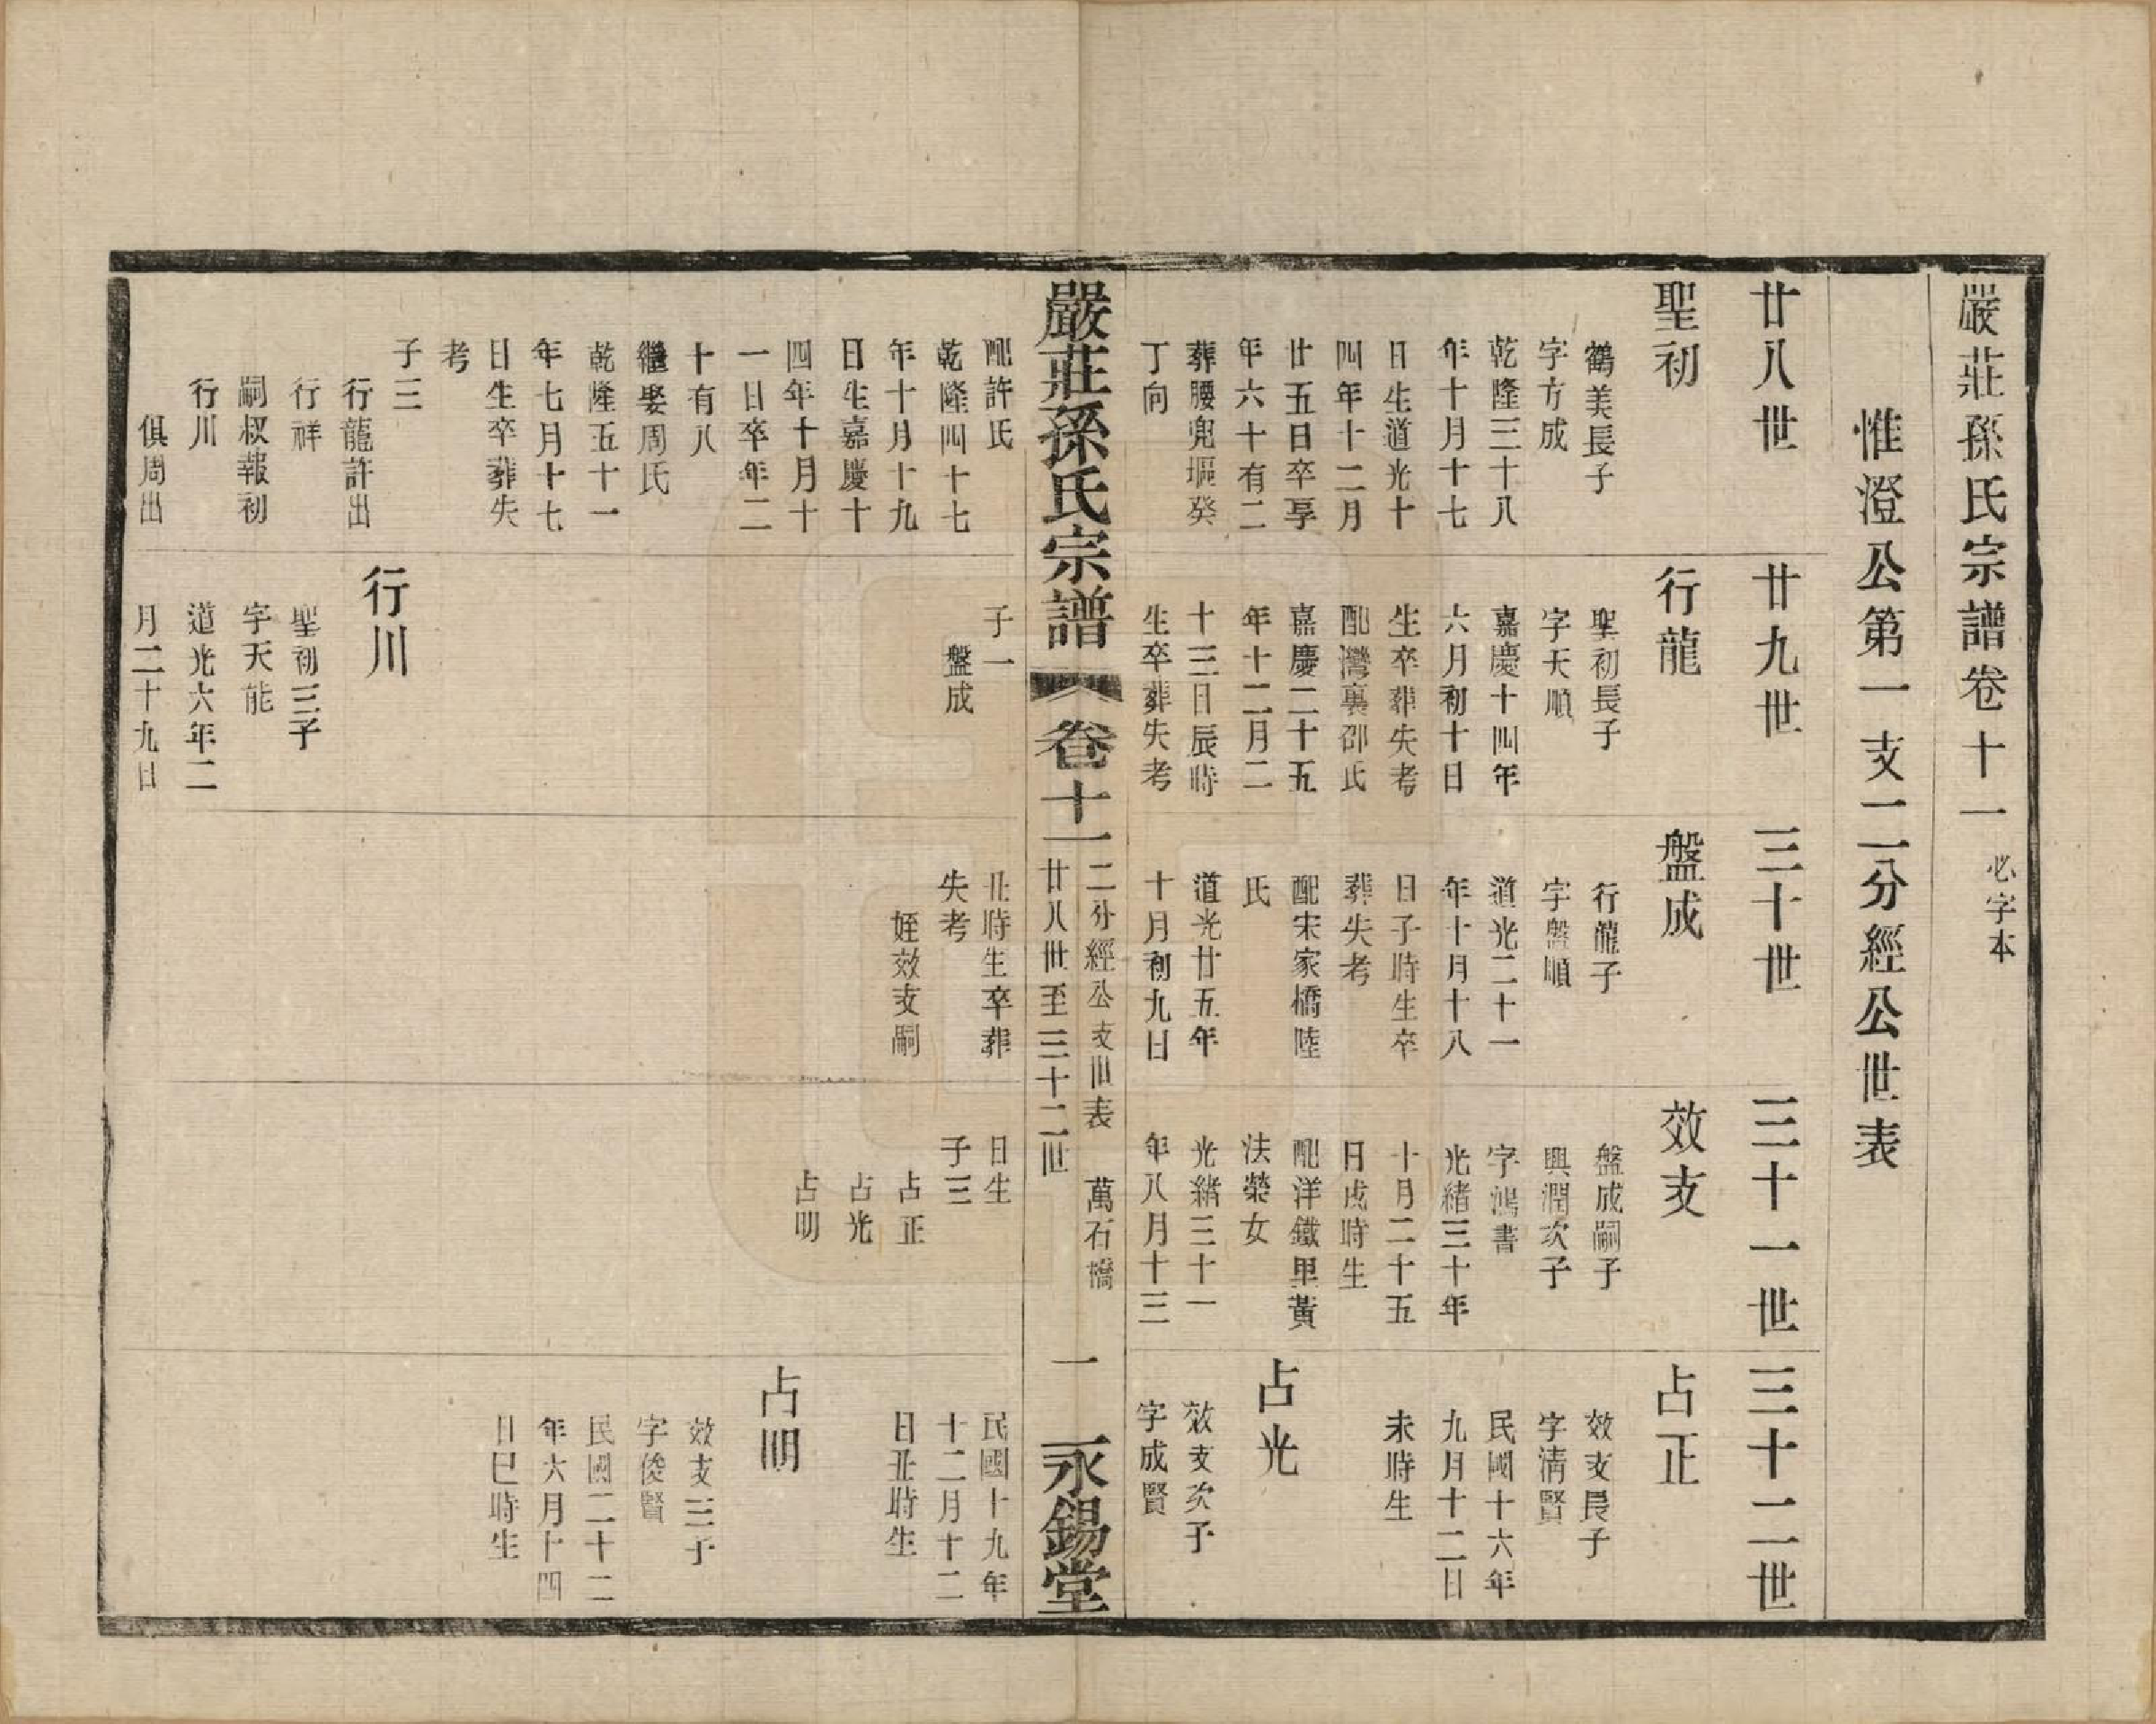 嚴莊孫氏宗譜卷十一
必字本
惟澄公第一支二分經公世表
廿八世
廿九世
三十世
三十一世
三十二世
聖初
鶴美長子
字方成
乾隆三十八
年十月十七
日生道光十
四年十二月
廿五日卒享
年六十有二
葬腰兜塸癸
丁向
行龍
聖初長子
字天順
嘉慶十四年
六月初十日
生卒葬失考
配灣裏邵氏
嘉慶二十五
年十二月二
十三日辰時
生卒葬失考
盤成
行龍子
字盤順
道光二十一
年十月十八
日子時生卒
葬失考
配宋家橋陸
氏
道光廿五年
十月初九日
效支
盤成嗣子
興潤次子
字鴻書
光緒三十年
十月二十五
日戌時生
配洋鐵里黃
法榮女
光緒三十一
年八月十三
占正
效支長子
字清賢
民國十六年
九月十二日
未時生
占光
效支次子
字成賢
嚴莊孫氏宗譜
卷十一
二分經公支世表
廿八世至三十二世
萬石橋
一
永錫堂
配許氏
乾隆四十七
年十月十九
日生嘉慶十
四年十月十
一日卒年二
十有八
繼娶周氏
乾隆五十一
年七月十七
日生卒葬失
考
子三
行龍許出
行祥
嗣叔報初
行川
俱周出
子一
盤成
行川
聖初三子
字天能
道光六年二
月二十九日
丑時生卒葬
失考
姪效支嗣
日生
子三
占正
占光
占明
民國十九年
十二月十二
日丑時生
占明
效支三子
字俊賢
民國二十二
年六月十四
日巳時生